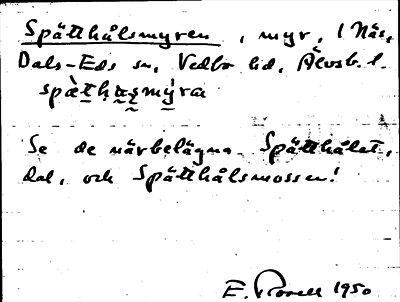 Spätthålsmyren, myr, i Näs,
Dals-Eds sn, Vedbo hd, Älvsb. l.
spæ̀tḥa̱ṣmýra
Se de närbelägna Spätthålet,
dal, och Spätthålsmossen!
E. Rosell 1950